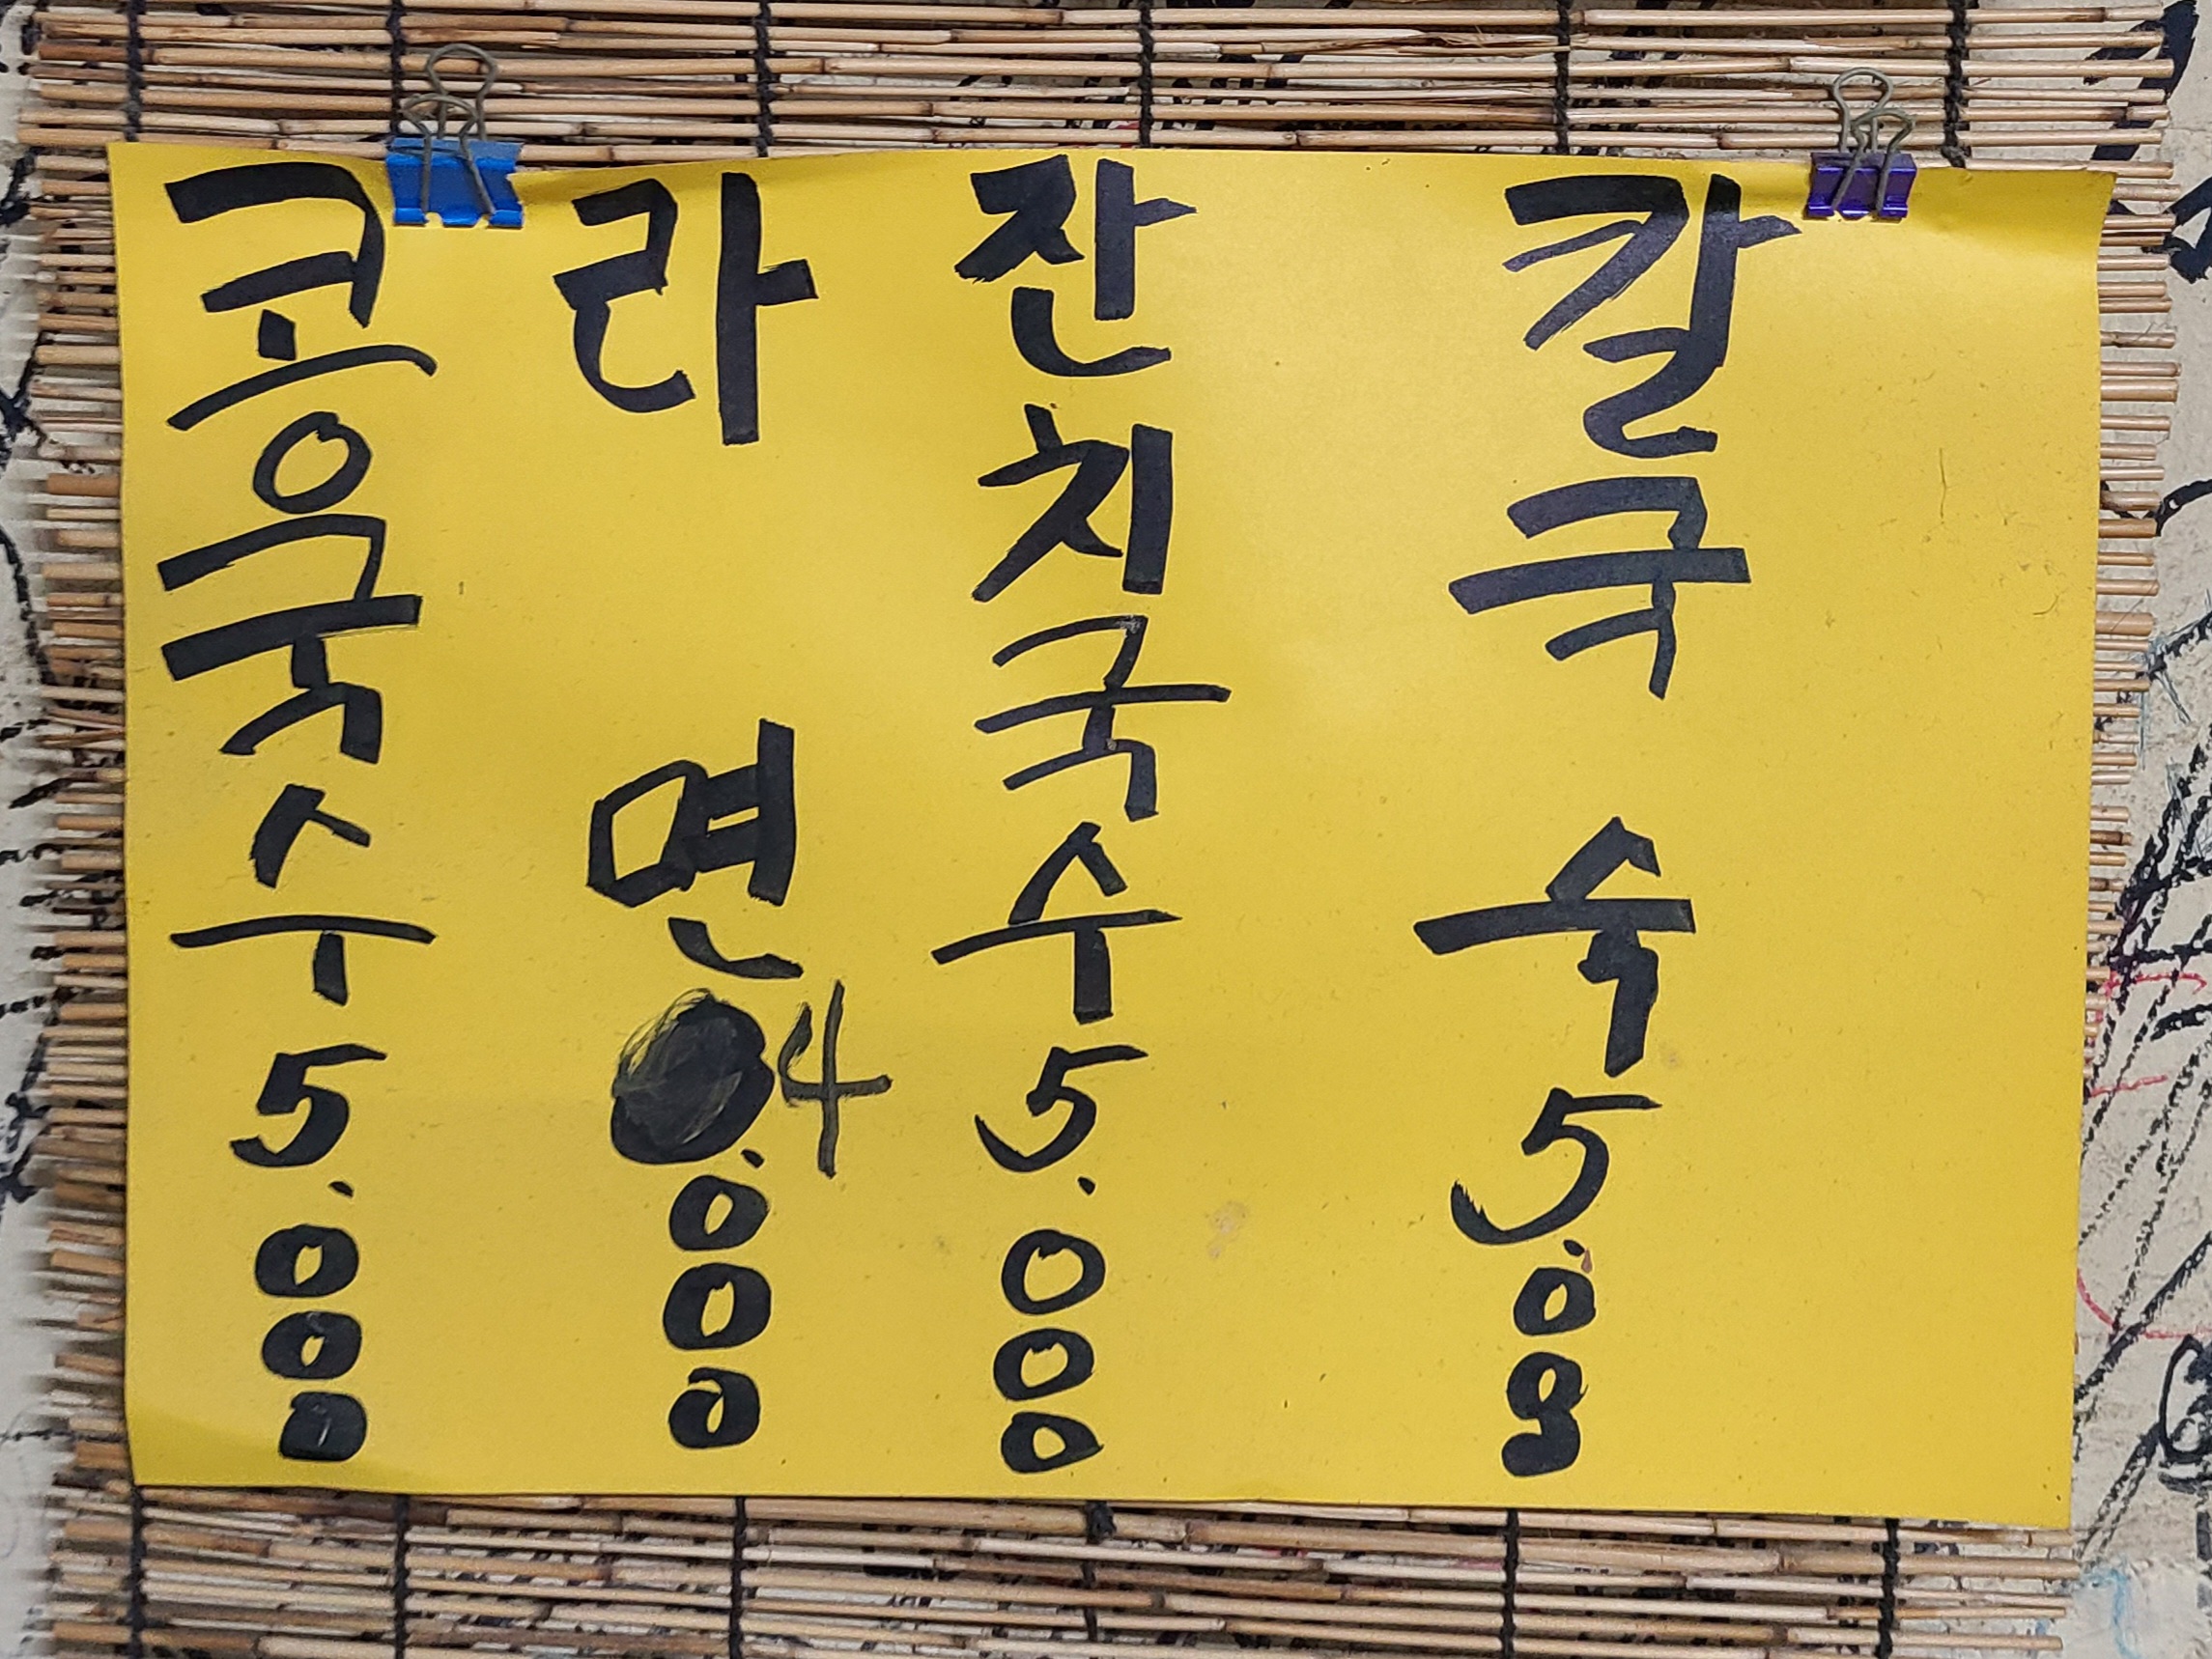 콩국수 5.000
라면 4.000
잔치국수 5.000
칼국수 5.000